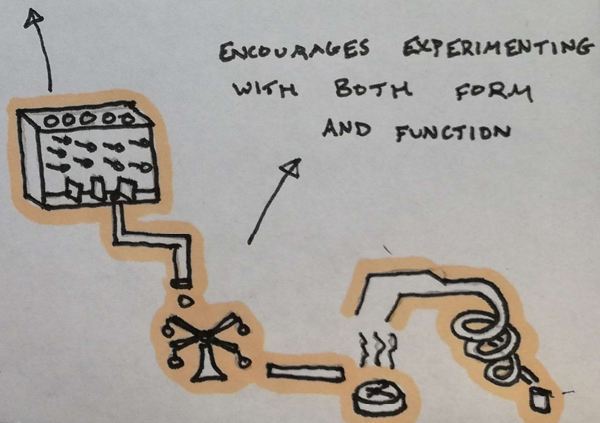 ENCOURAGES EXPERIMENTING
WITH BOTH FORM
AND FUNCTION